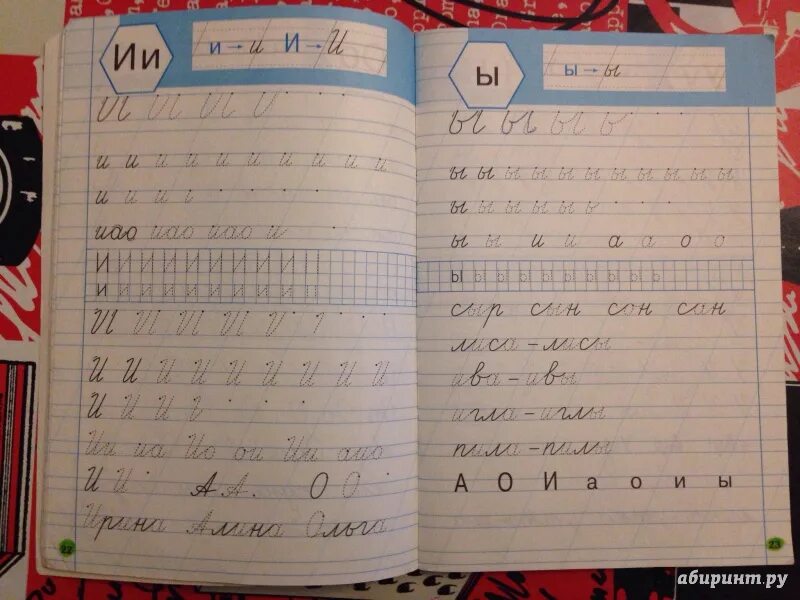 Ии
и → и И → И
И И И
и и и и и и и и и и и
и и и
иао иао иао и
И И И И И И И И И
и и и и и и и и и
И И И И
И И И И И И И И И
И И И
Ии иа Ио ои Ии аио
И И А А О О
Ирина Алина Ольга
22
ы
ы → ы
ы ы ы ь
ы ы ы ы ы ы ы ы ы ы ы
ы ы ы ы ы ь
ы ы и и а а о о
ы ы ы ы ы ы ы ы ы ь
сыр сын сон сан
лиса – лисы
ива – ивы
игла – иглы
пила – пилы
А О И а о и ы
23
абиринт.ру